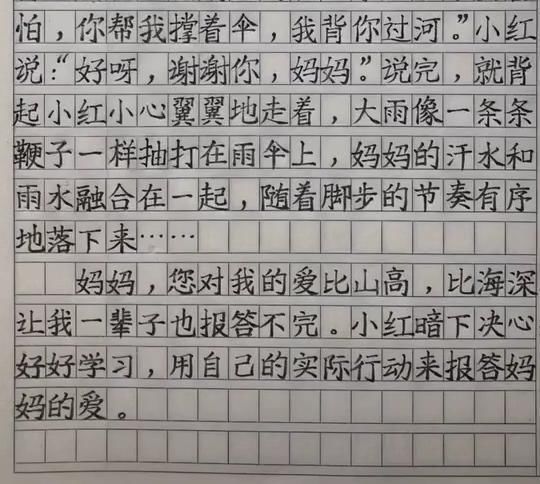 怕，你帮我撑着伞，我背你过河。”小红
说：“好呀，谢谢你，妈妈。”说完，就背
起小红小心翼翼地走着，大雨像一条条
鞭子一样抽打在雨伞上，妈妈的汗水和
雨水融合在一起，随着脚步的节奏有序
地落下来……
妈妈，您对我的爱比山高，比海深
让我一辈子也报答不完。小红暗下决心
好好学习，用自己的实际行动来报答妈
妈的爱。